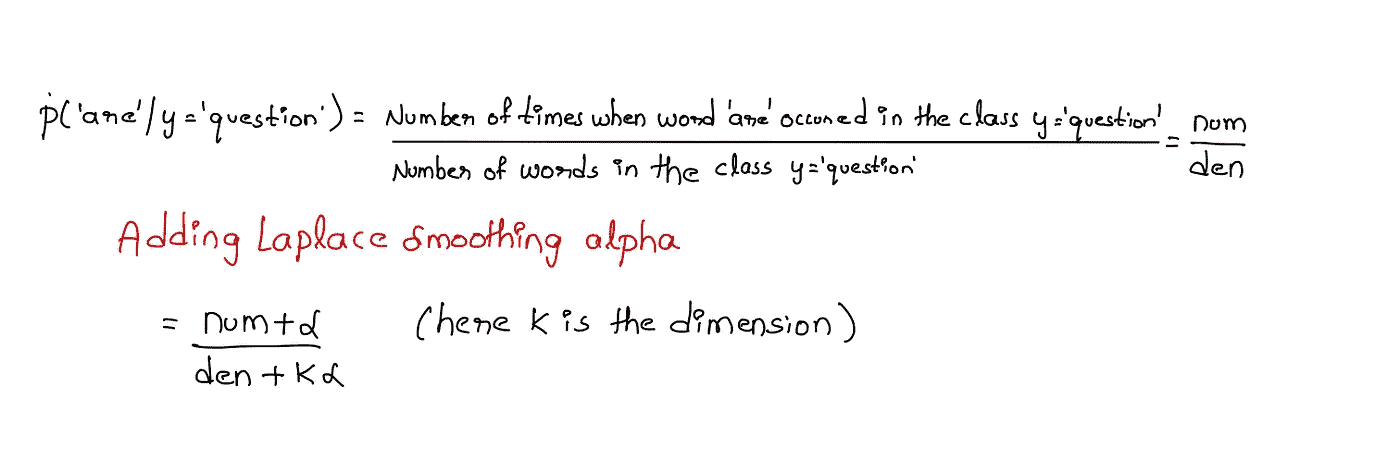 p('are'/y='question') = Number of times when word 'are' occured in the class y='question' / Number of words in the class y='question' = num / den
Adding Laplace smoothing alpha
= num+α / den+Kα (here K is the dimension)